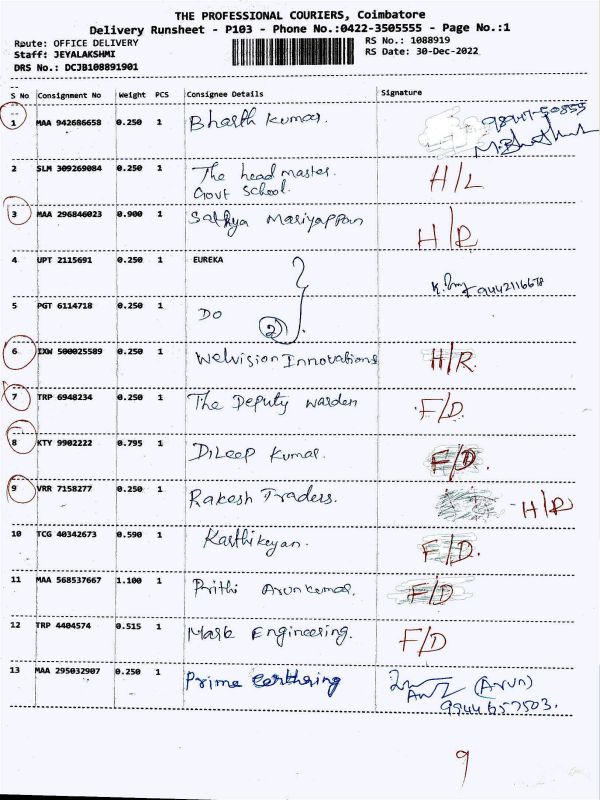 THE PROFESSIONAL COURIERS, Coimbatore
Delivery Runsheet - P103 - Phone No.:0422-3505555 - Page No.:1
Route: OFFICE DELIVERY RS No.: 1088919
Staff: JEYALAKSHMI RS Date: 30-Dec-2022
DRS No.: DCJB108891901
S No Consignment No Weight PCS Consignee Details Signature
1 MAA 942686658 0.250 1 Bharth Kumar.
2 SLM 309269084 0.250 1 The head master. H/L
Govt School.
3 MAA 296846023 0.900 1 Sathya Mariyappan H/R
4 UPT 2115691 0.250 1 EUREKA
9442116678
5 PGT 6114718 0.250 1 DO
2
6 IXW 500025589 0.250 1 Welvision Innovations H/R.
7 TRP 6948234 0.250 1 The Deputy warden F/D.
8 KTY 9902222 0.795 1 Dileep Kumar. F/D.
9 VRR 7158277 0.250 1 Rakesh Traders. - H/R
10 TCG 40342673 0.590 1 Karthikeyan. F/D.
11 MAA 568537667 1.100 1 Prithi Arunkumar. F/D
12 TRP 4404574 0.515 1 Mark Engineering. F/D
13 MAA 295032907 0.250 1 Prime earthring (Arun)
9944657503.
9